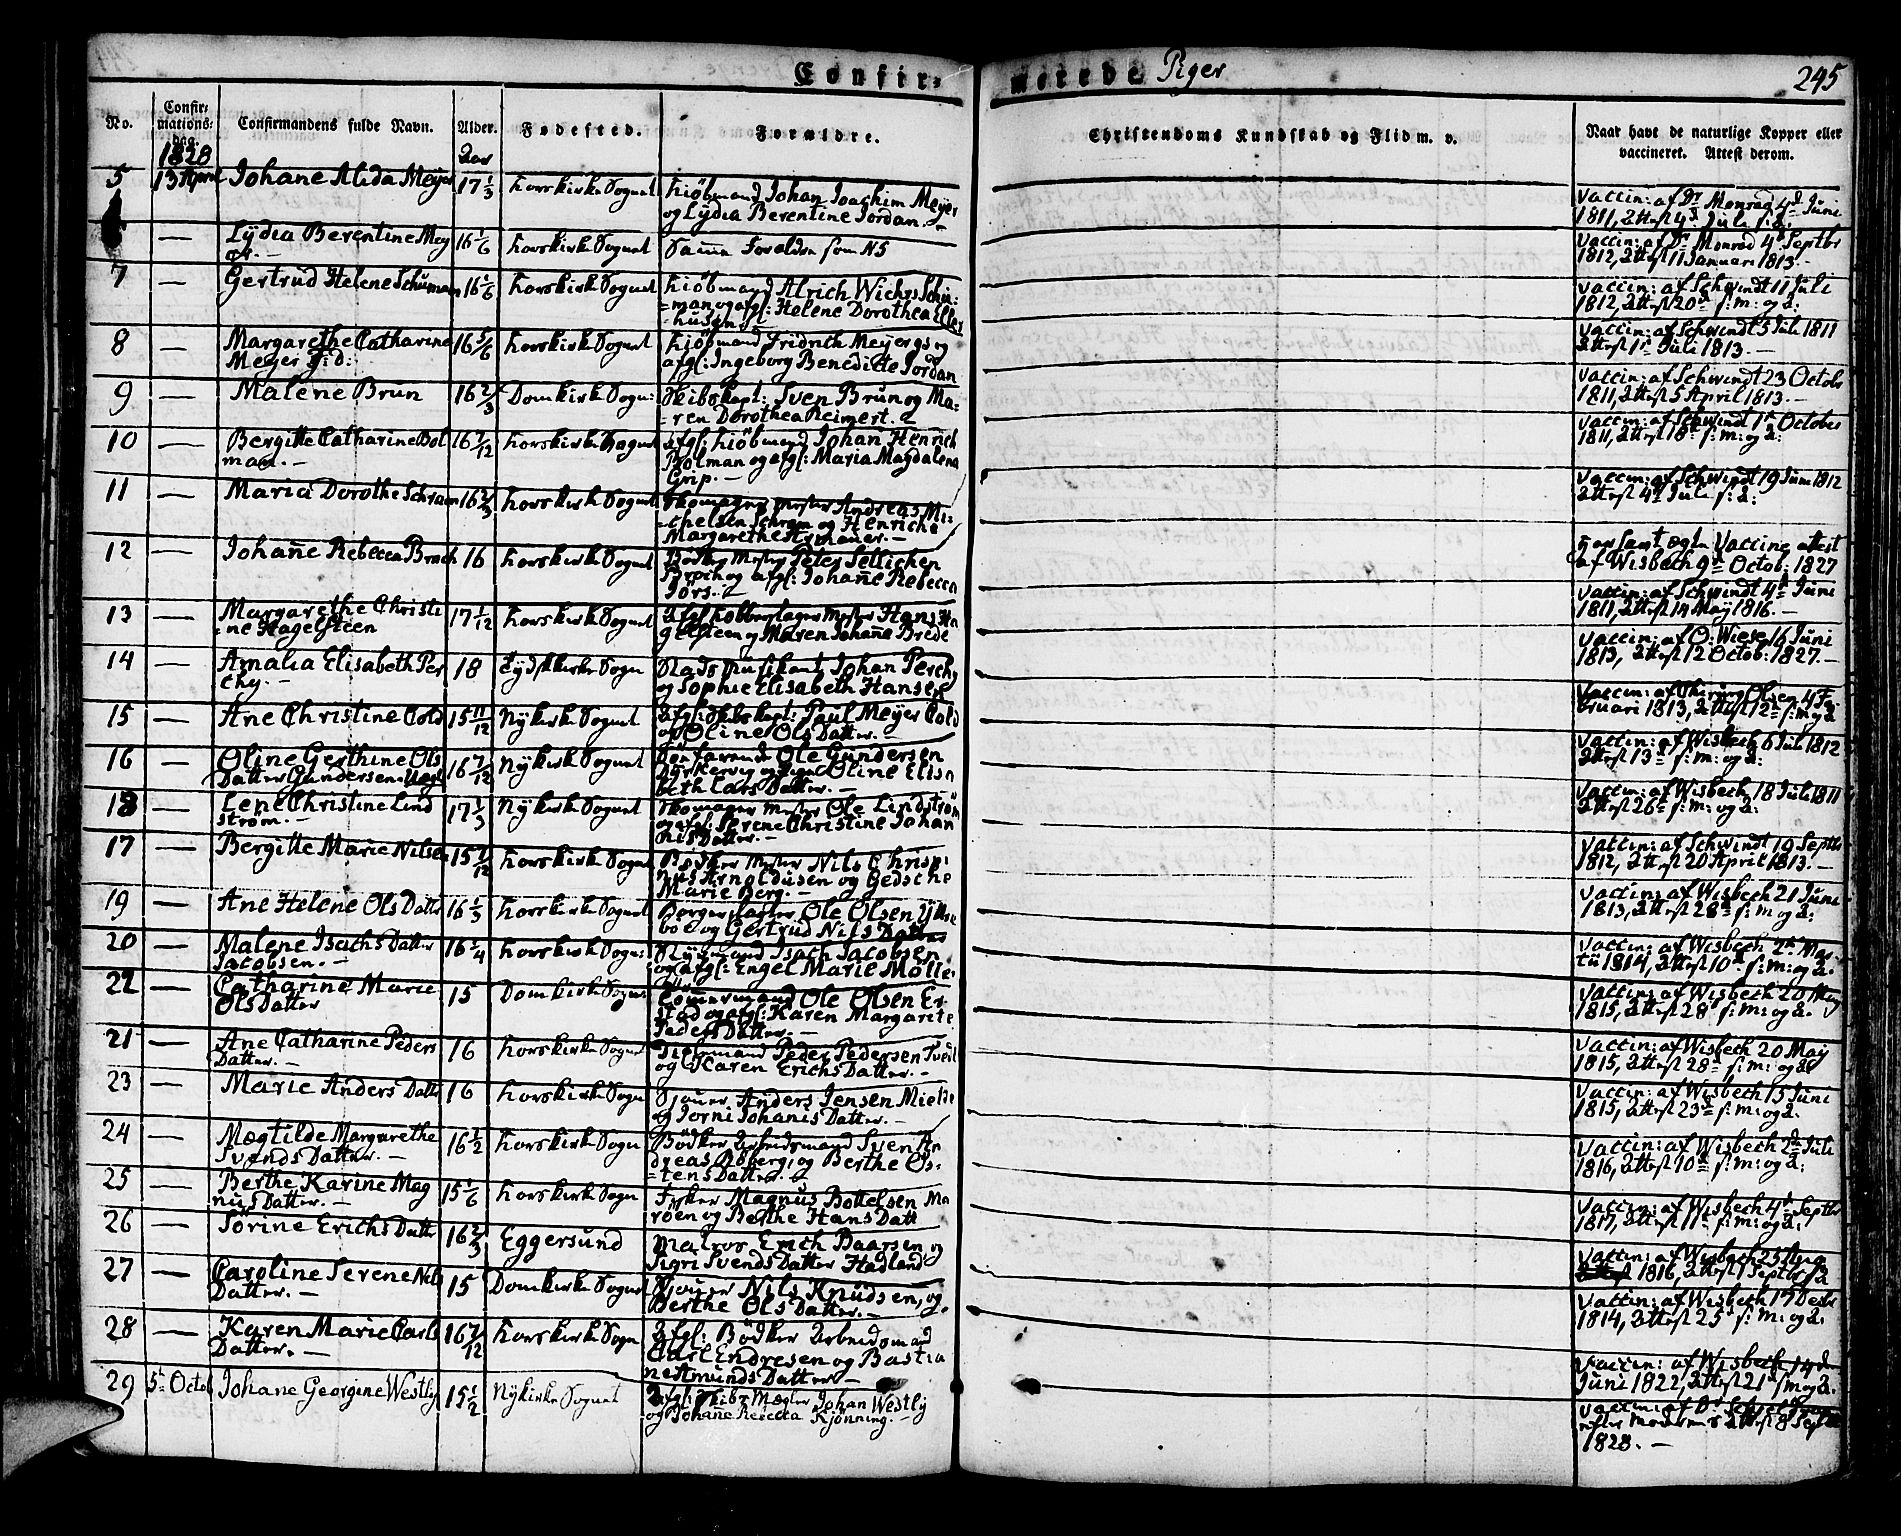 Confir- merede Piger 245
No. Confirmationsdag. Confirmandens fulde Navn. Alder. Fødested. Forældre. Christendoms Kundskab og Flid m. v. Naar havt de naturlige Kopper eller vaccineret. Attest derom.
1828 Aar
5 13 April Johane Alida Meyer 17 1/3 Korskirke Sognet Kiöbmand Johan Joachim Meyer
og Lydia Berentine Jordan.
Vaccin: af Dr Monrad 4d Juni
1811, Attest 4d Juli s: A:
— Lydia Berentine Mey
er. — 16 1/6 Korskirke Sognet Samme Forældre som N 5
Vaccin: af Dr Monrad 4d Septbr
1812, Attest 11 Januari 1813. —
7 — Gertrud Helene Schuman 16 1/6 Korskirke Sognet Kiöbmand Alrich Wichrs Schu-
=man og afgl: Helene Dorothea Eller
=husen.
Vaccin: af Schwindt 11 Juli
1812, Attest 20d s: m: og A:
8 — Margarethe Catharine
Meyer f: d: 16 5/6 Korskirke Sognet Kiöbmand Fridrich Meyer og
afgl: Ingeborg Benedicte Jordan
Vaccin: af Schwindt 5 Juli 1811
Attest 1d Juli 1813. —
9 — Malene Brun 16 2/3 Domkirke Sogn: Skibskapt: Sven Brun og Ma-
=ren Dorothea Reimert.
Vaccin: af Schwindt 23 Octobr
1811, Attest 5 April 1813. —
10 — Bergitte Catharine Bol
man. — 16 7/12 Korskirke Sognet Afgl: Kiöbmand Johan Henrich
Bolman og afgl: Maria Magdalena
Grip. —
Vaccin: af Schwindt 1d October
1811, Attest 18d s: m: og A:
11 — Maria Dorothe Schram 16 2/3 Korskirke Sognet Skomager Mester Andreas Mi-
=chelsen Schram og Henriche
Margarethe Armauer. —
Vaccin: af Schwindt 19 Juni 1812
Attest 4d Juli s: A:
12 — Johanne Rebecca Broch 16 Korskirke Sognet Bödker Mester Peter
Broch og afgl: Johanne Rebecca
Jors.
Vaccine attest
af Wisbech 9d Octob: 1827
13 — Margarethe Christi
=ne Hagelsteen 17 1/12 Korskirke Sognet Afgl Kobberslager Mester Hans Ha
gelsteen og Maren Johanne Brede
Vaccin: af Schwindt 4d Juni
1811, Attest 14 May 1816. —
14 — Amalia Elisabeth Per
chy. — 18 Tydskkirke Sogn Stads Musikant Johan Perchy
og Sophie Elisabeth Hansen
Vaccin: af O: Wiese 16 Juni
1813, Attest 12 Octob: 1827. —
15 — Ane Christine Cold 15 11/12 Nykirke Sognet Afgl: Skibskapt: Paul Meyer Cold
og Oline Ols Datter. —
Vaccin: af Chirurg Olsen 4 Fe-
bruari 1813, Attest 12d s: m: og A
16 — Oline Gerthine Ols
Datter Gundersen 16 7/12 Nykirke Sognet Ole Gundersen
og Oline Elisa
beth Lars Datter. —
Vaccin: af Wisbech 6 Juli 1812
Attest 13d s: m: og A:
18 — Lene Christine Lind
ström. — 17 1/3 Nykirke Sognet Skomager Mester Ole Lindström
og afgl: Serene Christine Johan
nis Datter. —
Vaccin: af Wisbech 18 Juli 1811
Attest 26d s: m: og A:
17 — Bergitte Marie Nilsen 15 7/12 Korskirke Sognet Bödker Mester Nils Chrispi
nus Arnoldusen og Gedsche
Marie Berg. —
Vaccin: af Schwindt 19 Septbr
1812, Attest 20 April 1813. —
19 — Ane Helene Ols Datter 16 1/3 Korskirke Sognet Borger Ole Olsen Ytte
boe og Gertrud Nils Datter
Vaccin: af Wisbech 21 Juni
1813, Attest 28d s: m: og A:
20 — Malene Isachs Datter
Jacobsen. — 16 1/4 Korskirke Sogn: Isach Jacobsen
og afgl: Engel Marie Möller
Vaccin: af Wisbech 2d Mar-
tii 1814, Attest 10d s: m: og A:
22 — Catharine Marie
Ols Datter 15 Domkirke Sogn Tömmermand Ole Olsen Er-
stad og afgl: Karen Margarite
Peders Datter. —
Vaccin: af Wisbech 20 May
1815, Attest 28d s: m: og A:
21 — Ane Catharine Peders
Datter. — 16 Korskirke Sognet Peder Pedersen Tveit
og Karen Erichs Datter. —
Vaccin: af Wisbech 20 May
1815, Attest 28d s: m: og A:
23 — Marie Anders Datter 16 Korskirke Sogn Sjouer Anders Jensen Mielde
og Jorni Johanis Datter. —
Vaccin: af Wisbech 15 Juni
1815, Attest 23d s: m: og A.
24 — Mægtilde Margarethe
Svends Datter. — 16 1/2 Korskirke Sogn Bödker Arbeidsmand Sven An
dreas Roberg, og Berthe Os-
=tens Datter. —
Vaccin: af Wisbech 2d Juli
1816, Attest 10d s: m: og A:
25 — Berthe Karine Mag
nus Datter. — 15 1/6 Korskirke Sogn Fisker Magnus Bottelsen Ma
röen og Berthe Hans Datt
Vaccin: af Wisbech 4d Septbr
1817, Attest 11d s: m: og A:
26 — Sörine Erichs Datter 16 2/3 Eggersund Matros Erich Baarsen og
Sigri Svends Datter Hadland
Vaccin: af Wisbech 25 Aug
1816, Attest 1 Septbr s: A
27 — Caroline Serene Nils
Datter. — 15 Domkirke Sognet Sjouer Nils Knudsen, og
Berthe Ols Datter. —
Vaccin: af Wisbech 17 Decbr
1814, Attest 25d s: m: og A:
28 — Karen Marie Carls
Datter. — 16 7/12 Korskirke Sogn Afgl: Bödker Arbeidsmand
Carl Endresen og Bastia
ne Amunds Datter —
Vaccin: af Wisbech 14de
Juni 1822, Attest 21d s: m og A:
29 5t Octob Johane Georgine Westly 15 1/2 Nykirke Sognet Afgl: Skibs Mægler Johan Westly
og Johanne Rebecca Kjönning. —
Vaccin: af Dr
Attest 8 Septbr
1828. —